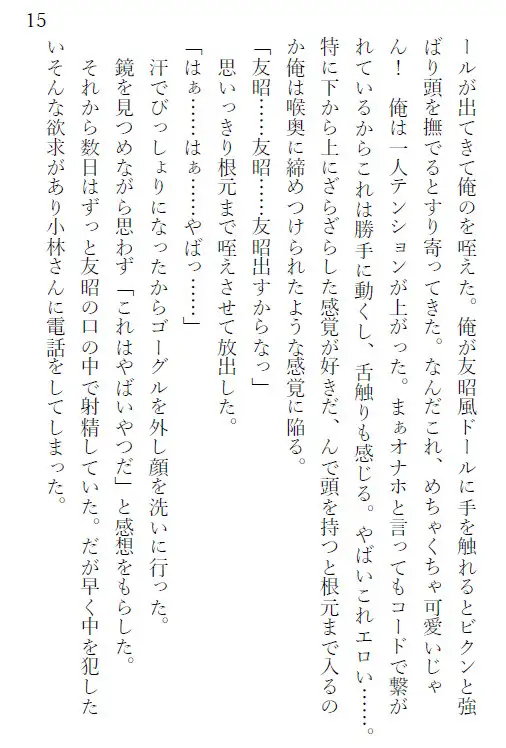 15
ールが出てきて俺のを咥えた。俺が友昭風ドールに手を触れるとビクンと強
ばり頭を撫でるとすり寄ってきた。なんだこれ、めちゃくちゃ可愛いじゃ
ん！　俺は一人テンションが上がった。まぁオナホと言ってもコードで繋が
れているからこれは勝手に動くし、舌触りも感じる。やばいこれエロい……。
特に下から上にざらざらした感覚が好きだ、んで頭を持つと根元まで入るの
か俺は喉奥に締めつけられたような感覚に陥る。
「友昭……友昭……友昭出すからなっ」
思いっきり根元まで咥えさせて放出した。
「はぁ……はぁ……やばっ……」
汗でびっしょりになったからゴーグルを外し顔を洗いに行った。
鏡を見つめながら思わず「これはやばいやつだ」と感想をもらした。
それから数日はずっと友昭の口の中で射精していた。だが早く中を犯した
いそんな欲求があり小林さんに電話をしてしまった。